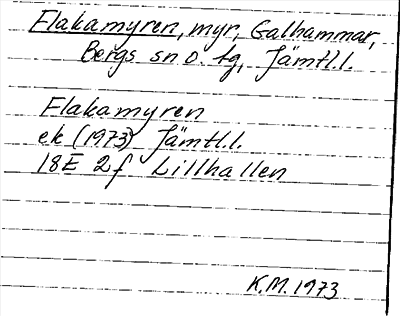 Flakamyren, myr, Galhammar,
Bergs sn o. tg, Jämtl.l.
Flakamyren
ek (1973) Jämtl.l.
18E 2f Lillhallen
K.M. 1973